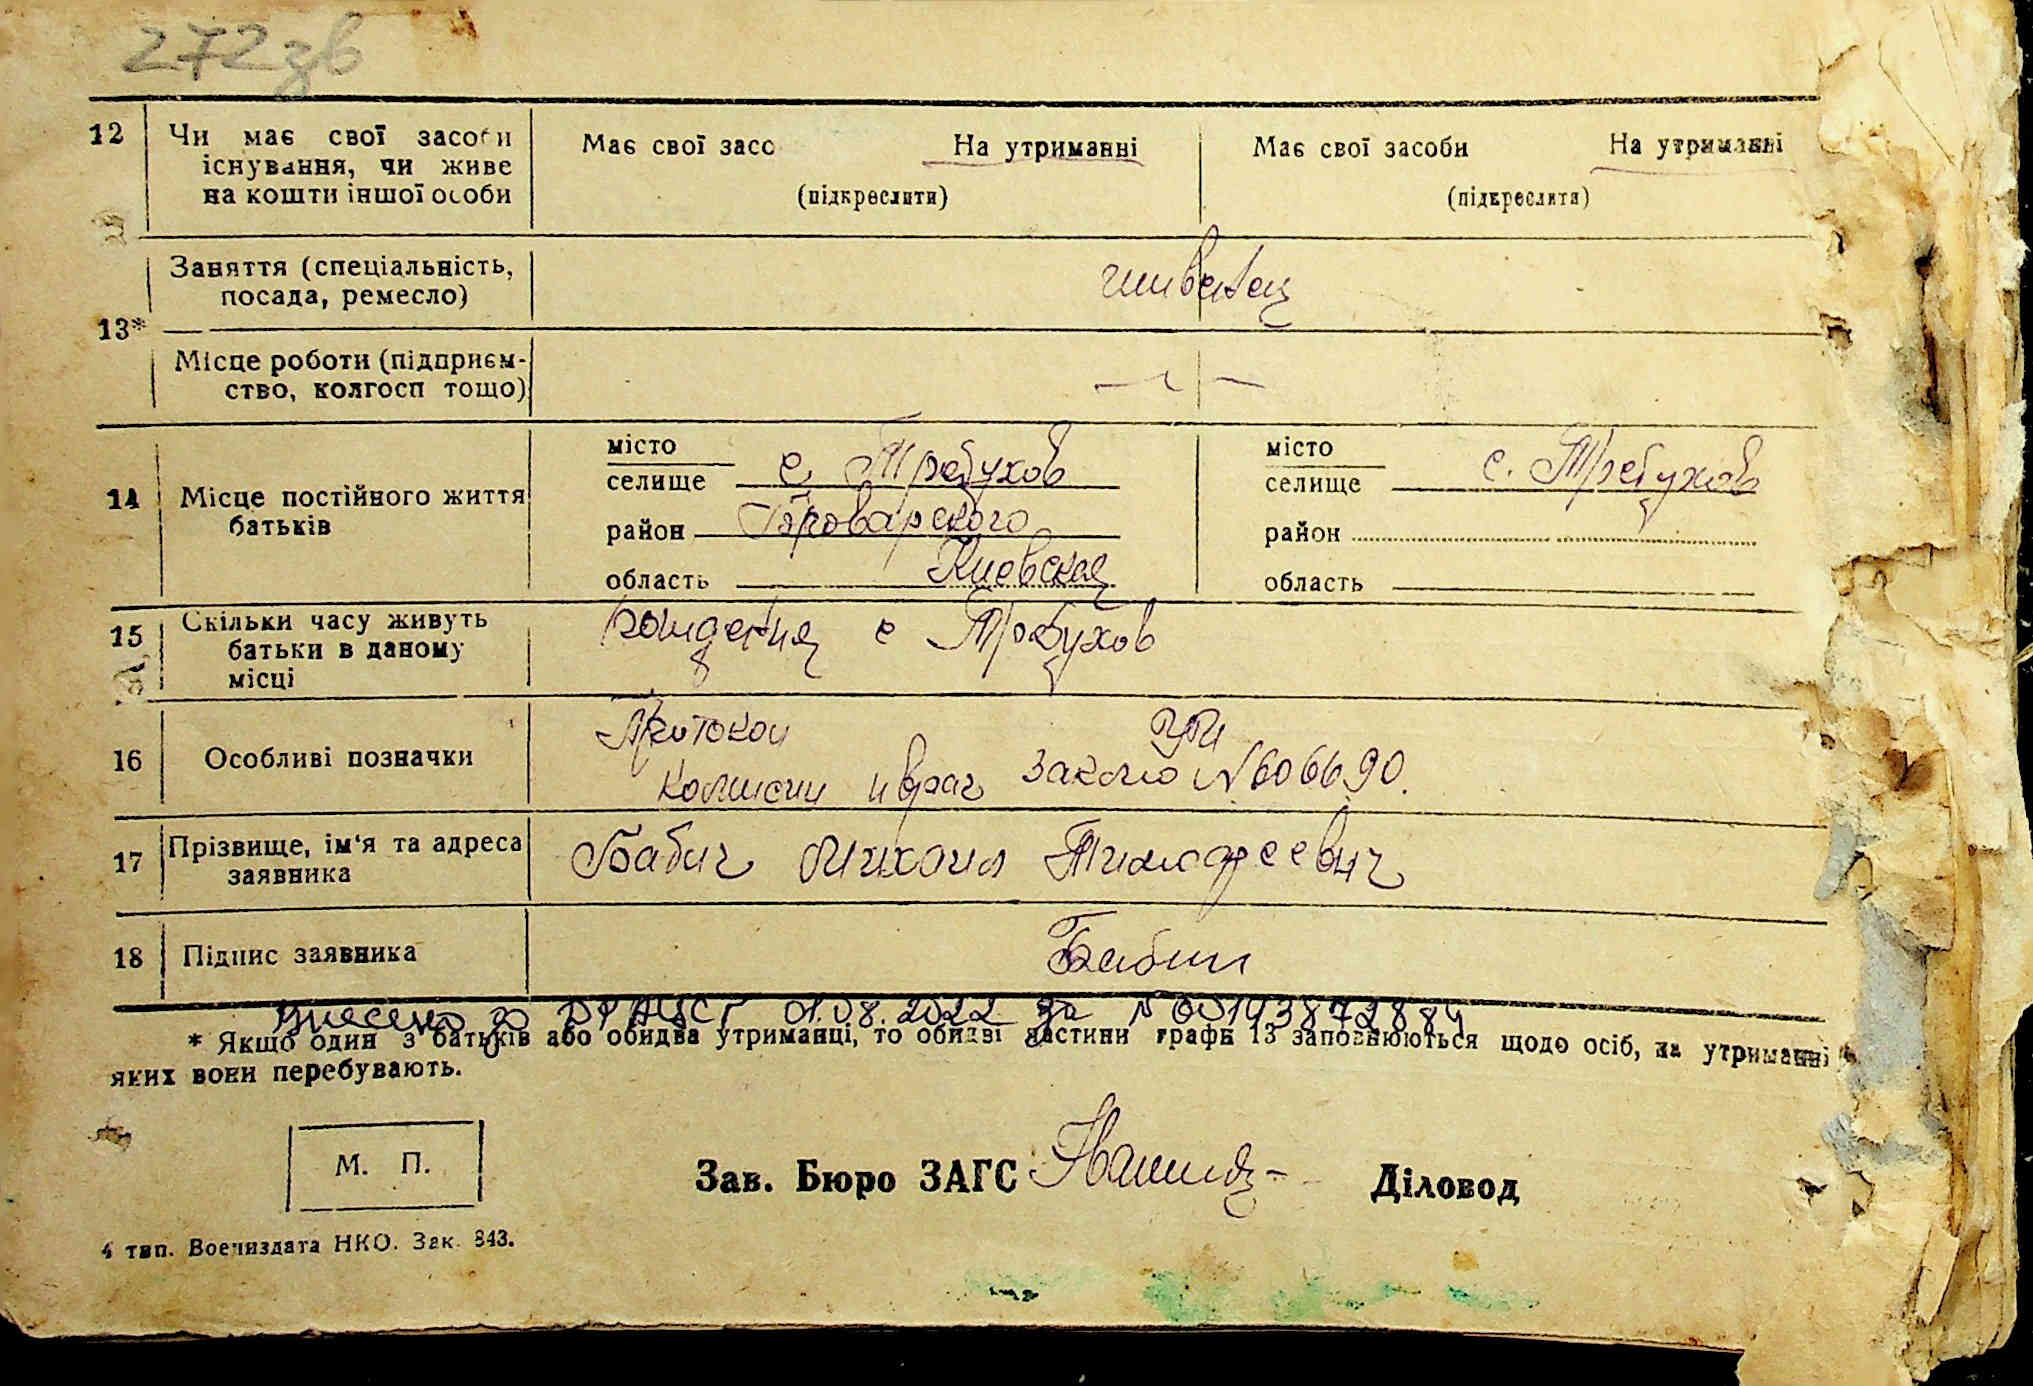 272зв
12 Чи має свої засоби Має свої засо На утриманні Має свої засоби На утриманні
існування, чи живе
на кошти іншої особи (підкреслити) (підкреслити)
Заняття (спеціальність,
посада, ремесло)
13*
Місце роботи (підприєм-
ство, колгосп тощо)
місто місто
селище с. Требухов селище с. Требухов
14 Місце постійного життя
батьків
район Броварского район
область Киевская область
15 Скільки часу живуть рождения с Требухов
батьки в даному
місці
Протокол
16 Особливі позначки
комисии и врач закмю N 606690.
17 Прізвище, ім'я та адреса Бабич Михаил Тимофеевич
заявника
18 Підпис заявника Бабич
Внесено до ДРАЦСГ 01.08.2022 за № 00143872884
* Якщо один з батьків або обидва утриманці, то обидві частини графи 13 заповнюються щодо осіб, на утриманні
яких вони перебувають.
М. П.
Зав. Бюро ЗАГС Діловод
4 тип. Воениздата НКО. Зак. 843.